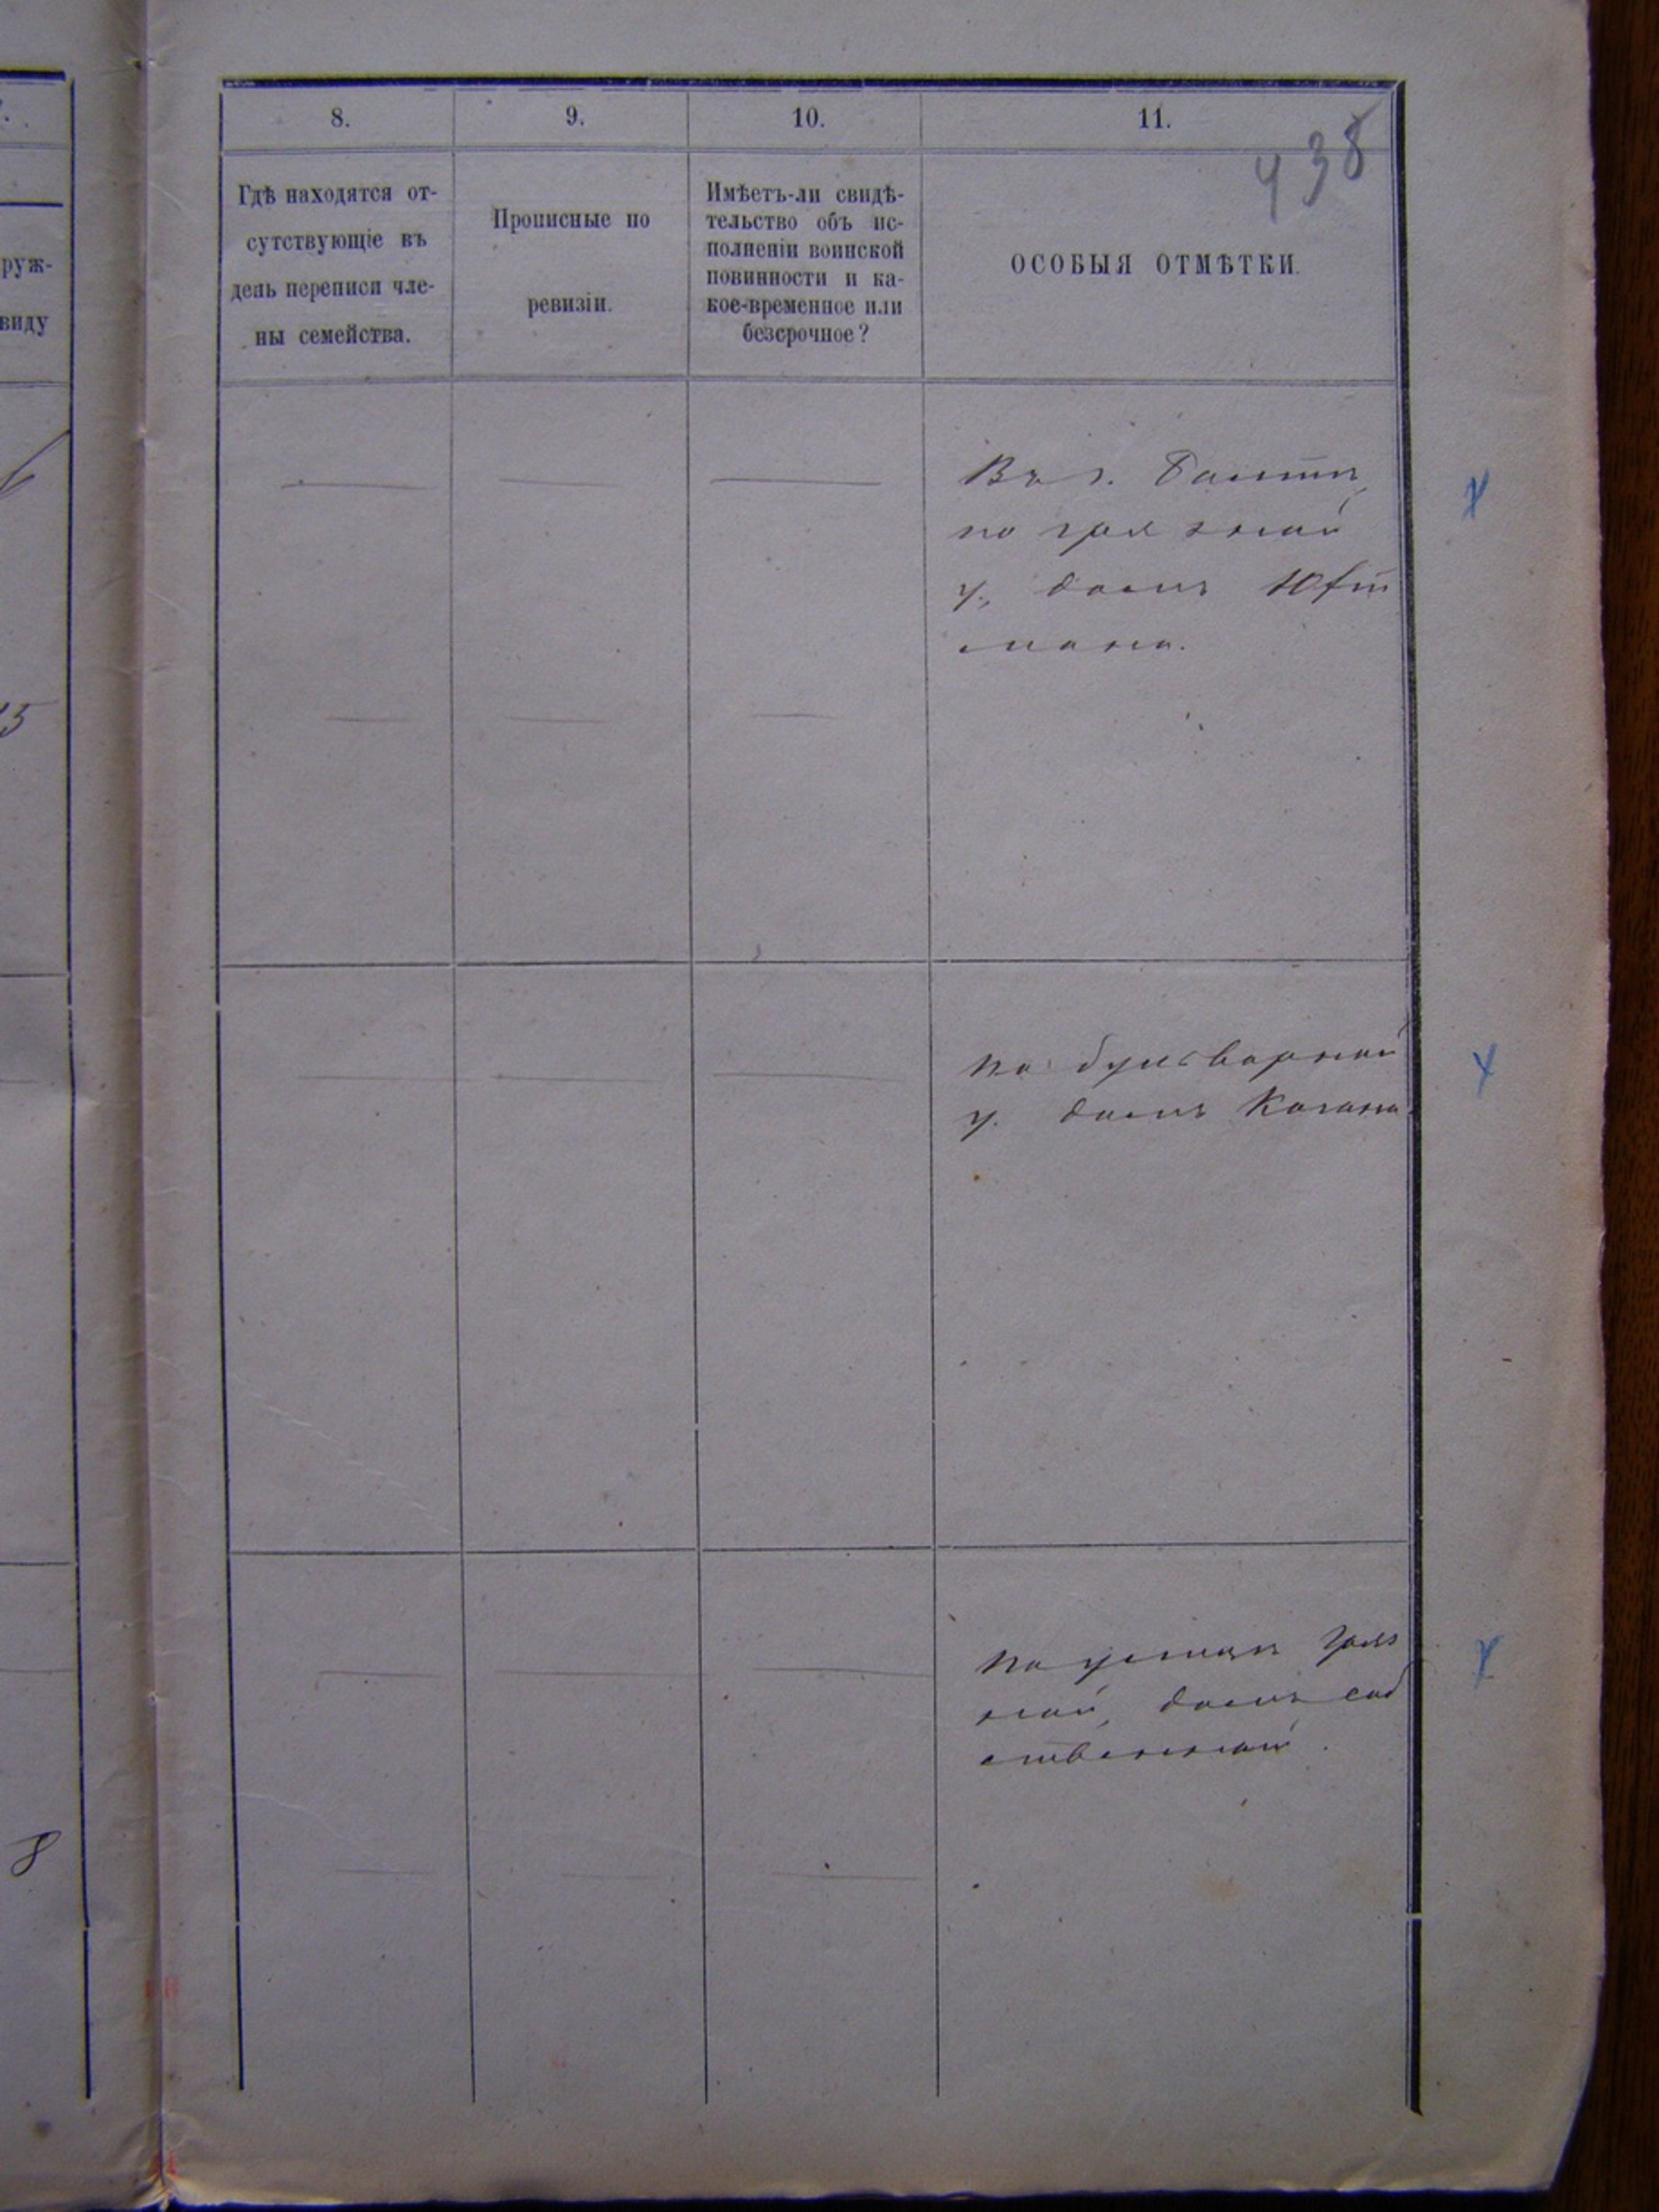 8.
9.
10.
11.
438
Гдѣ находятся от-
сутствующіе въ
день переписи чле-
ны семейства.
Прописные по
ревизіи.
Имѣетъ-ли свидѣ-
тельство объ ис-
полненіи воинской
повинности и ка-
кое-временное или
безсрочное?
ОСОБЫЯ ОТМѢТКИ.
руж-
виду
Въ г. Балтѣ
по грязной
у. домъ
мана.
по бульварной
у. домъ Кагана
По улицѣ гряз
ной, домъ соб
ственный.
15
8